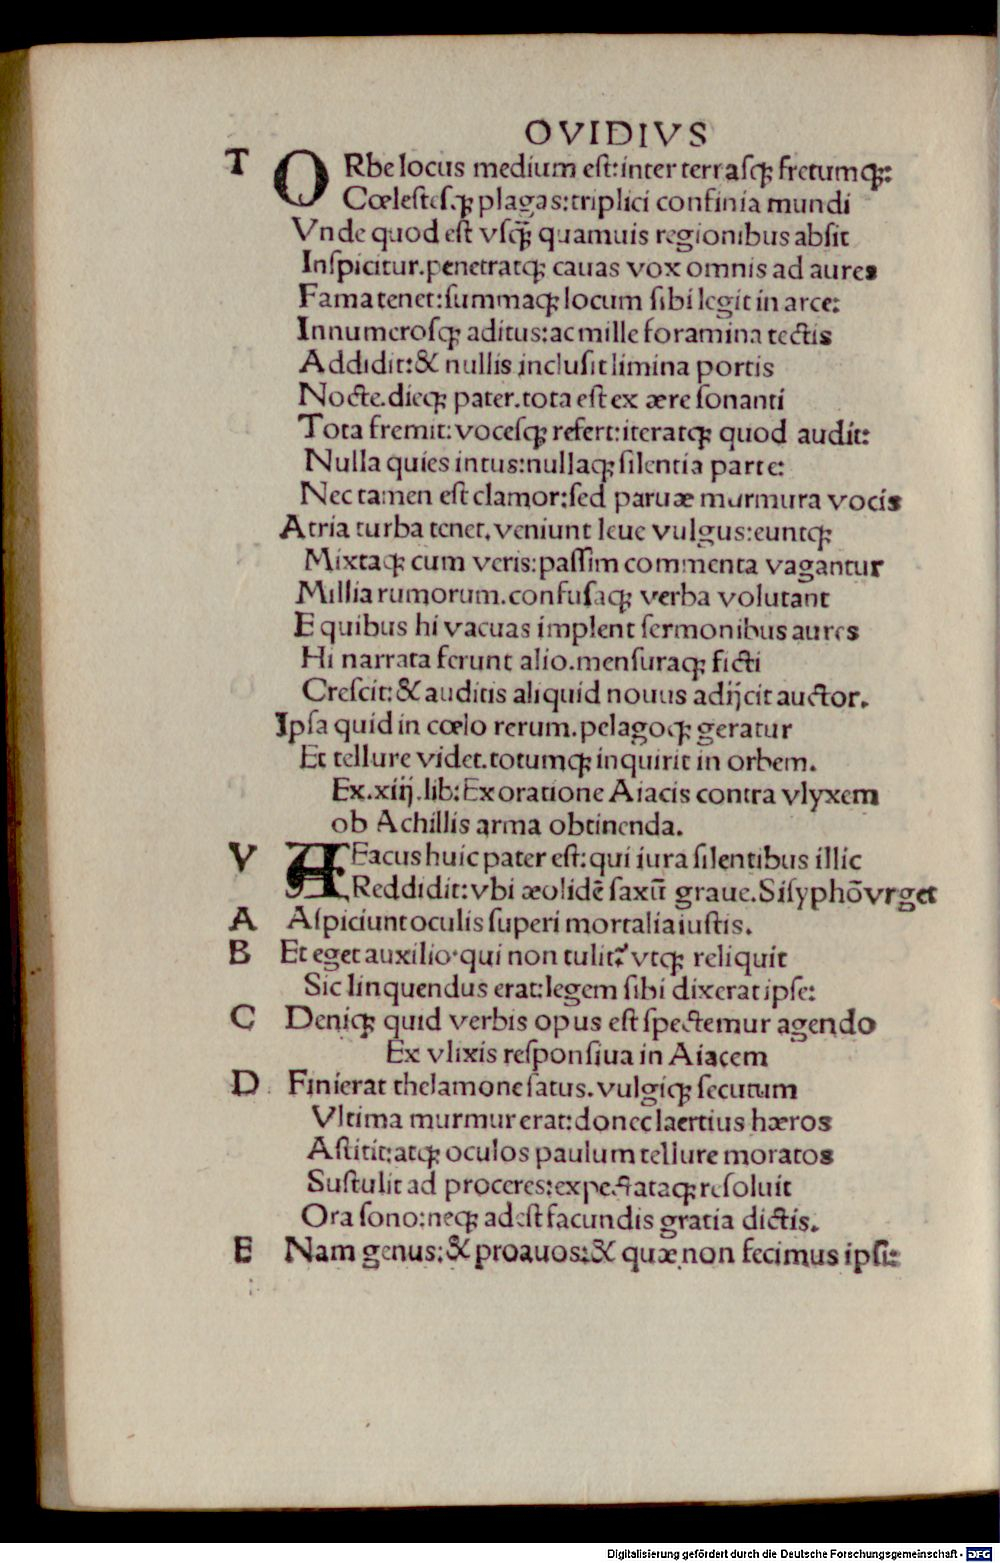 OVIDIVS
T ORbe locus medium eſt: inter terraſq; fretumq;:
Cœleſteſ.q; plagas: triplici confinia mundi
Vnde quod eſt vſq̃; quamuis regionibus abſit
Inſpicitur. penetratq; cauas vox omnis ad aures
Fama tenet: ſummaq; locum ſibi legit in arce:
Innumeroſq; aditus: ac mille foramina tectis
Addidit: & nullis incluſit limina portis
Nocte. dieq; pater. tota eſt ex ære ſonanti
Tota fremit: voceſq; refert: iteratq; quod audit:
Nulla quies intus: nullaq; ſilentia parte:
Nec tamen eſt clamor: ſed paruæ murmura vocis
Atria turba tenet. veniunt leue vulgus: euntq;
Mixtaq; cum veris: paſſim commenta vagantur
Millia rumorum. confuſaq; verba volutant
E quibus hi vacuas implent ſermonibus aures
Hi narrata ferunt alio. menſuraq; ficti
Creſcit: & auditis aliquid nouus adijcit auctor.
Ipſa quid in cœlo rerum. pelagoq; geratur
Et tellure videt. totumq; inquirit in orbem.
Ex. xiij. lib: Ex oratione Aiacis contra vlyxem
ob Achillis arma obtinenda.
V AEacus huic pater eſt: qui iura ſilentibus illic
Reddidit: vbi æolidē ſaxū graue. Siſyphō vrget
A Aſpiciunt oculis ſuperi mortalia iuſtis.
B Et eget auxilio· qui non tulit? vtq; reliquit
Sic linquendus erat: legem ſibi dixerat ipſe:
C Deniq; quid verbis opus eſt ſpectemur agendo
Ex vlixis reſponſiua in Aiacem
D Finierat thelamone ſatus. vulgiq; ſecutum
Vltima murmur erat: donec laertius hæros
Aſtitit: atq; oculos paulum tellure moratos
Suſtulit ad proceres: expectataq; reſoluit
Ora ſono: neq; adeſt facundis gratia dictis.
E Nam genus: & proauos: & quæ non fecimus ipſi:
Digitalisierung gefördert durch die Deutsche Forschungsgemeinschaft - DFG